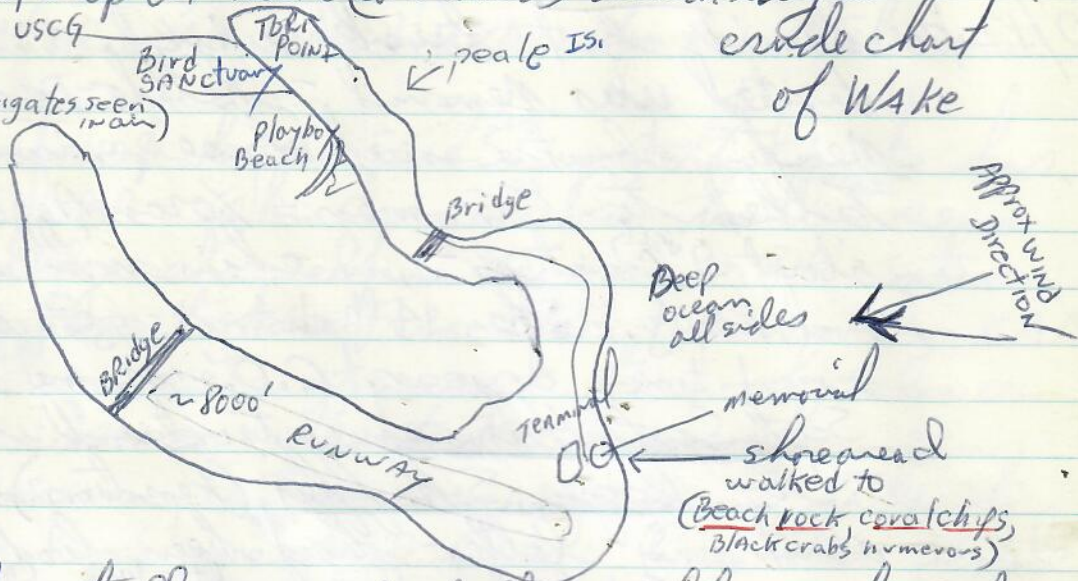 USCG
TORI
POINT
peale IS.
crude chart
of WAKE
Bird
SANCtuary
igates seen
in air)
Playbo
Beach
Bridge
APPROX WIND
DIRECTION
Beep
ocean
all sides
BRidge
~8000'
RUNWAY
TERMINAL
memorial
shore area
walked to
(Beach rock, coral chips,
Black crabs numerous)